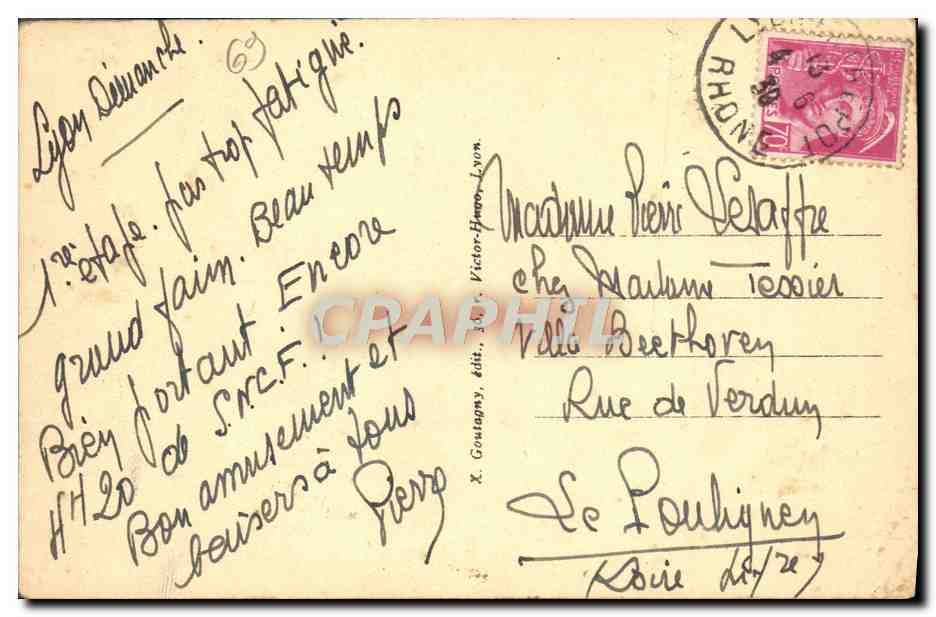 Lyon Dimanche.
69
1re étape. pas trop fatigué.
grand faim. Beau temps
Bien portant Encore
4H20 de S.N.C.F.!
Bon amusement et
baisers à tous
Pierre
X. Goutagny, édit., 30, r. Victor-Hugo, Lyon.
RHONE
70
Madame Pierre Delaffre
chez Madame Tessier
Villa Beethoven
Rue de Verdun
Le Pouliguen
Loire Infre
CPAPHIL